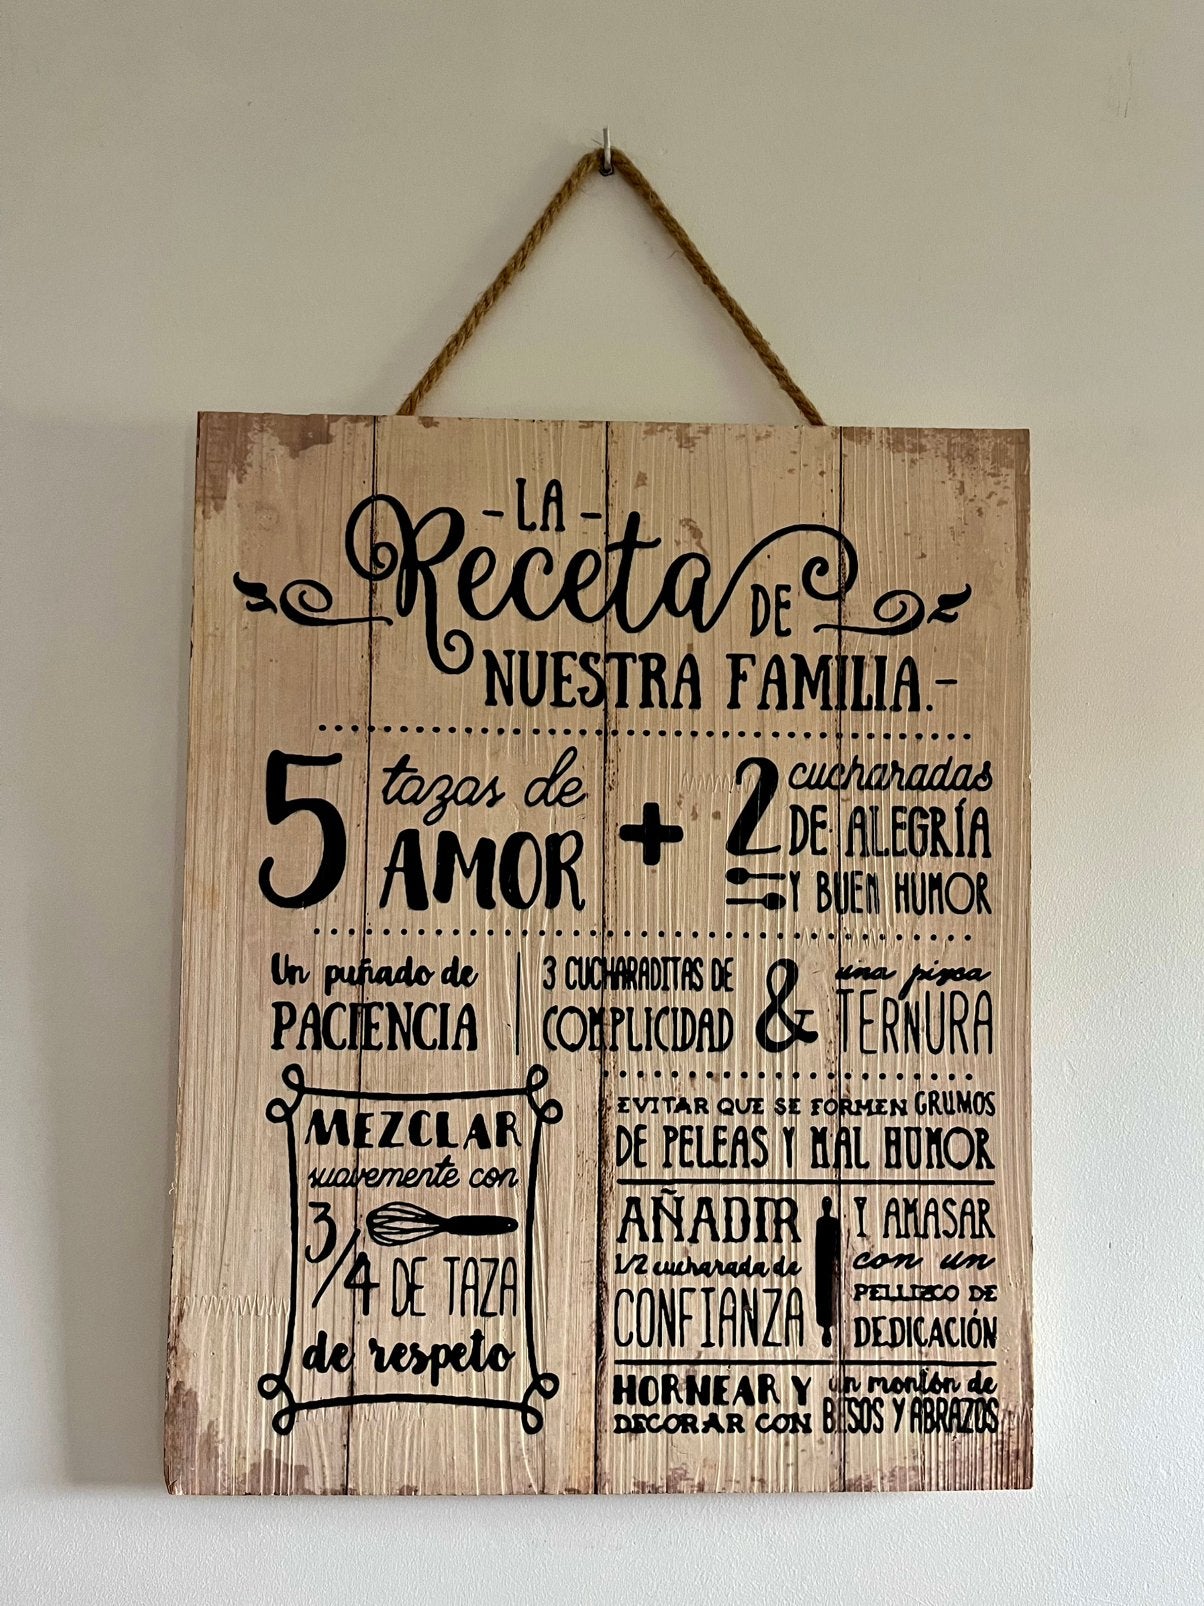 - LA -
Receta DE
NUESTRA FAMILIA.-
5 tazas de
AMOR
+
2 cucharadas
DE ALEGRÍA
Y BUEN HUMOR
Un puñado de
PACIENCIA
3 CUCHARADITAS DE
COMPLICIDAD
&
una pizca
TERNURA
MEZCLAR
suavemente con
3/4 DE TAZA
de respeto
EVITAR QUE SE FORMEN GRUMOS
DE PELEAS Y MAL HUMOR
AÑADIR
1/2 cucharada de
CONFIANZA
Y AMASAR
con un
PELLIZCO DE
DEDICACIÓN
HORNEAR Y
DECORAR CON
un montón de
BESOS Y ABRAZOS